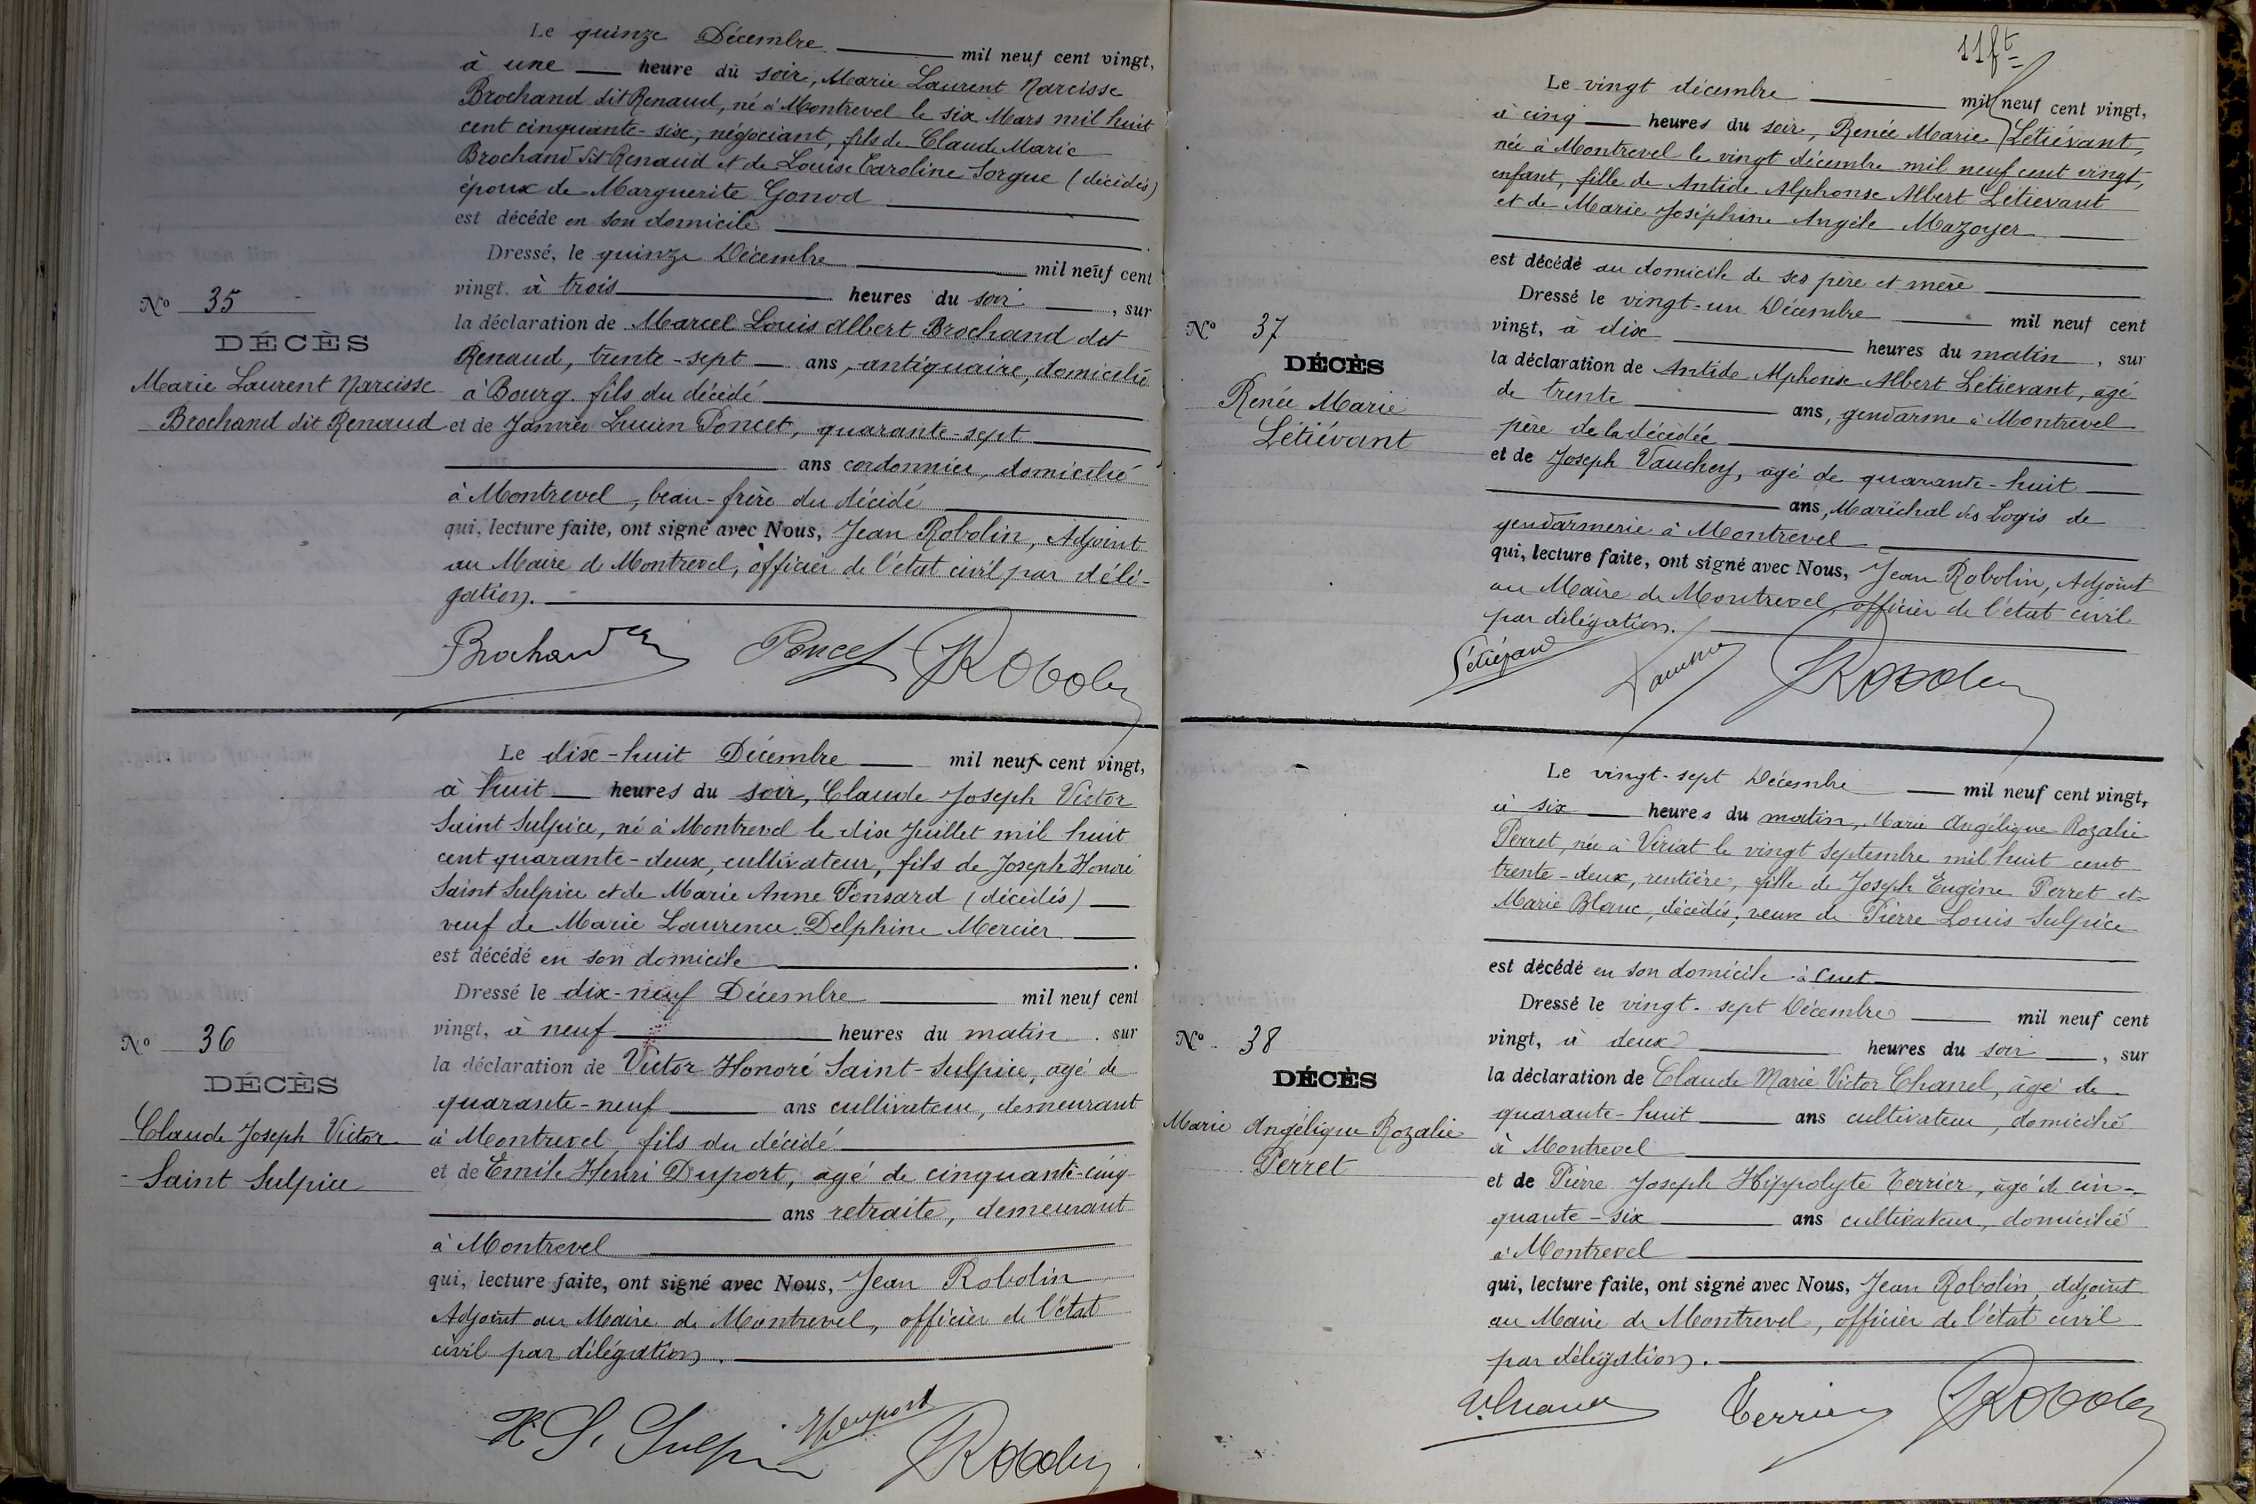 Le quinze Décembre mil neuf cent vingt,
à une heure du soir, Marie Laurent Narcisse
Brochand dit Renaud, né à Montrevel le six Mars mil huit
cent cinquante-six, négociant, fils de Claude Marie
Brochand dit Renaud et de Louise Caroline Sorgue (décédés)
époux de Marguerite Gonod
est décédé en son domicile
Dressé, le quinze Décembre mil neuf cent
vingt à trois heures du soir, sur
No 35
la déclaration de Marcel Louis Albert Brochand dit
DÉCÈS
Renaud, trente-sept ans, antiquaire, domicilié
Marie Laurent Narcisse
à Bourg. fils du décédé
Brochand dit Renaud
et de Janvier Lucien Poncet, quarante-sept
ans cordonnier, domicilié
à Montrevel, beau-frère du décédé
qui, lecture faite, ont signé avec Nous, Jean Robolin, Adjoint
au Maire de Montrevel, officier de l'état civil par délé-
gation.
Brochand Poncet JRobolin
Le dix-huit Décembre mil neuf cent vingt,
à huit heures du soir, Claude Joseph Victor
Saint Sulpice, né à Montrevel le dix Juillet mil huit
cent quarante-deux, cultivateur, fils de Joseph Honoré
Saint Sulpice et de Marie Anne Ponsard (décédés)
veuf de Marie Laurence Delphine Mercier
est décédé en son domicile.
Dressé le dix-neuf Décembre mil neuf cent
vingt, à neuf heures du matin. sur
No 36
la déclaration de Victor Honoré Saint-Sulpice, agé de
DÉCÈS
quarante-neuf ans cultivateur, demeurant
Claude Joseph Victor
à Montrevel fils du décédé
Saint Sulpice
et de Emile Henri Duport, agé de cinquante-cinq
ans retraité, demeurant
à Montrevel
qui, lecture faite, ont signé avec Nous, Jean Robolin
Adjoint au Maire de Montrevel, officier de l'état
civil par délégation.
H S. Sulpice HDuport JRobolin
11ft
Le vingt décembre mil neuf cent vingt,
à cinq heures du soir, Renée Marie Létiévant,
née à Montrevel le vingt décembre mil neuf cent vingt,
enfant, fille de Antide Alphonse Albert Létievant
et de Marie Joséphine Angèle Mazoyer
est décédé au domicile de ses père et mère
Dressé le vingt-un Décembre mil neuf cent
vingt, à dix heures du matin, sur
No 37
la déclaration de Antide Alphonse Albert Létievant, agé
DÉCÈS
de trente ans, gendarme à Montrevel
Renée Marie
père de la décédée
Létiévant
et de Joseph Vauchey, agé de quarante-huit
ans, Maréchal des Logis de
gendarmerie à Montrevel
qui, lecture faite, ont signé avec Nous, Jean Robolin, Adjoint
au Maire de Montrevel officier de l'état civil
par délégation.
JRobolin
Le vingt-sept Décembre mil neuf cent vingt,
à six heures du matin, Marie Angélique Rozalie
Perret, née à Viriat le vingt Septembre mil huit cent
trente-deux, rentière, fille de Joseph Eugène Perret et
Marie Blanc, décédés, veuve de Pierre Louis Sulpice
est décédé en son domicile à Cuet
Dressé le vingt-sept Décembre mil neuf cent
vingt, à deux heures du soir, sur
No 38
la déclaration de Claude Marie Victor Chanel, âgé de
DÉCÈS
quarante-huit ans cultivateur, domicilié
Marie Angélique Rozalie
à Montrevel
Perret
et de Pierre Joseph Hippolyte Terrier, âgé de cin-
quante-six ans cultivateur, domicilié
à Montrevel
qui, lecture faite, ont signé avec Nous, Jean Robolin, adjoint
au Maire de Montrevel, officier de l'état civil
par délégation.
Terrier JRobolin